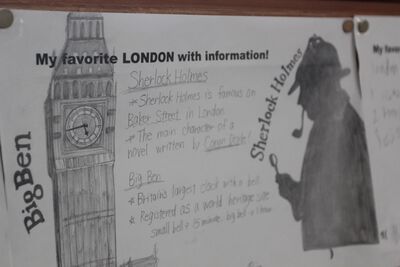 My favorite LONDON with information!
Sherlock Holmes
* Sherlock Holmes is famous on
Baker Street in London
* The main character of a
novel written by Conan Doyle!
Big Ben
* Britain's largest clock with a bell
* Registered as a world heritage site
small bell → 15 minute, big bell → 1 hour
Big Ben
Sherlock Holmes
My favorite
London